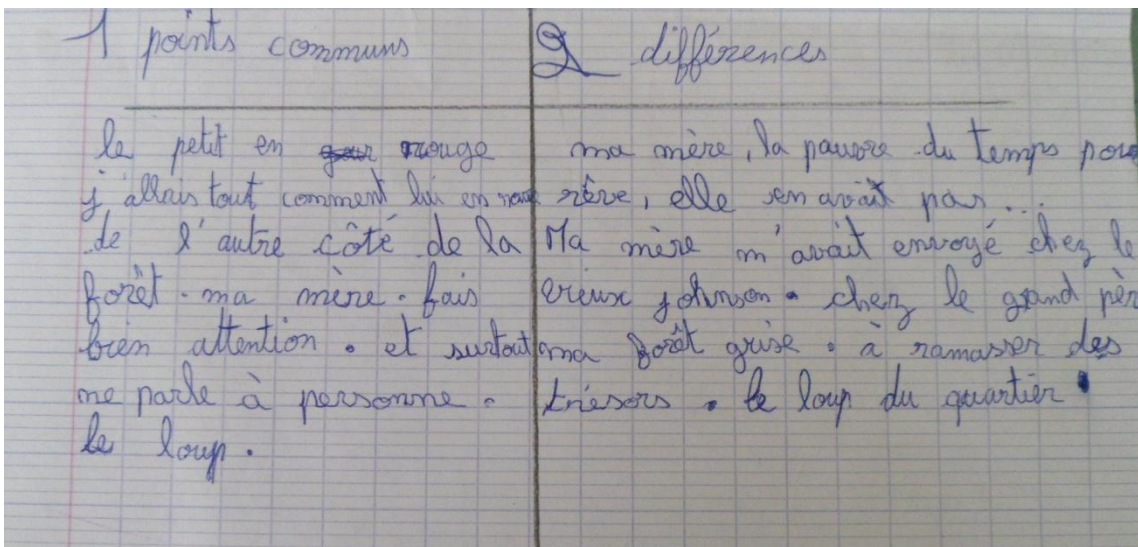 1 points communs
le petit en rouge
j'allais tout comment lui en
de l'autre côté de la
forêt. ma mère. fais
bien attention. et surtout
ne parle à personne.
le loup.
2 différences
ma mère, la pauvre du temps pour
rêve, elle en avait pas...
Ma mère m'avait envoyé chez le
vieux johnson. chez le grand pèr
ma forêt grise. à ramasser des
trésors. le loup du quartier